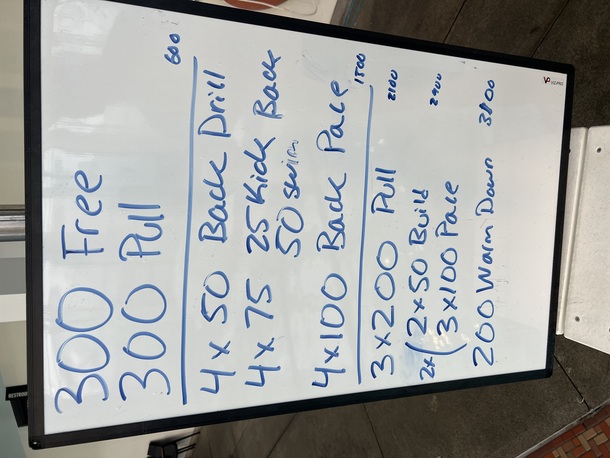 300 Free
300 Pull 600
4x50 Back Drill
4x75 25 Kick Back
50 swim
4x100 Back Pace 1500
3x200 Pull 2100
2x(2x50 Build
3x100 Pace 2900
200 Warm Down 3100
RESTROOM